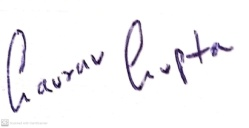 Gaurav Gupta